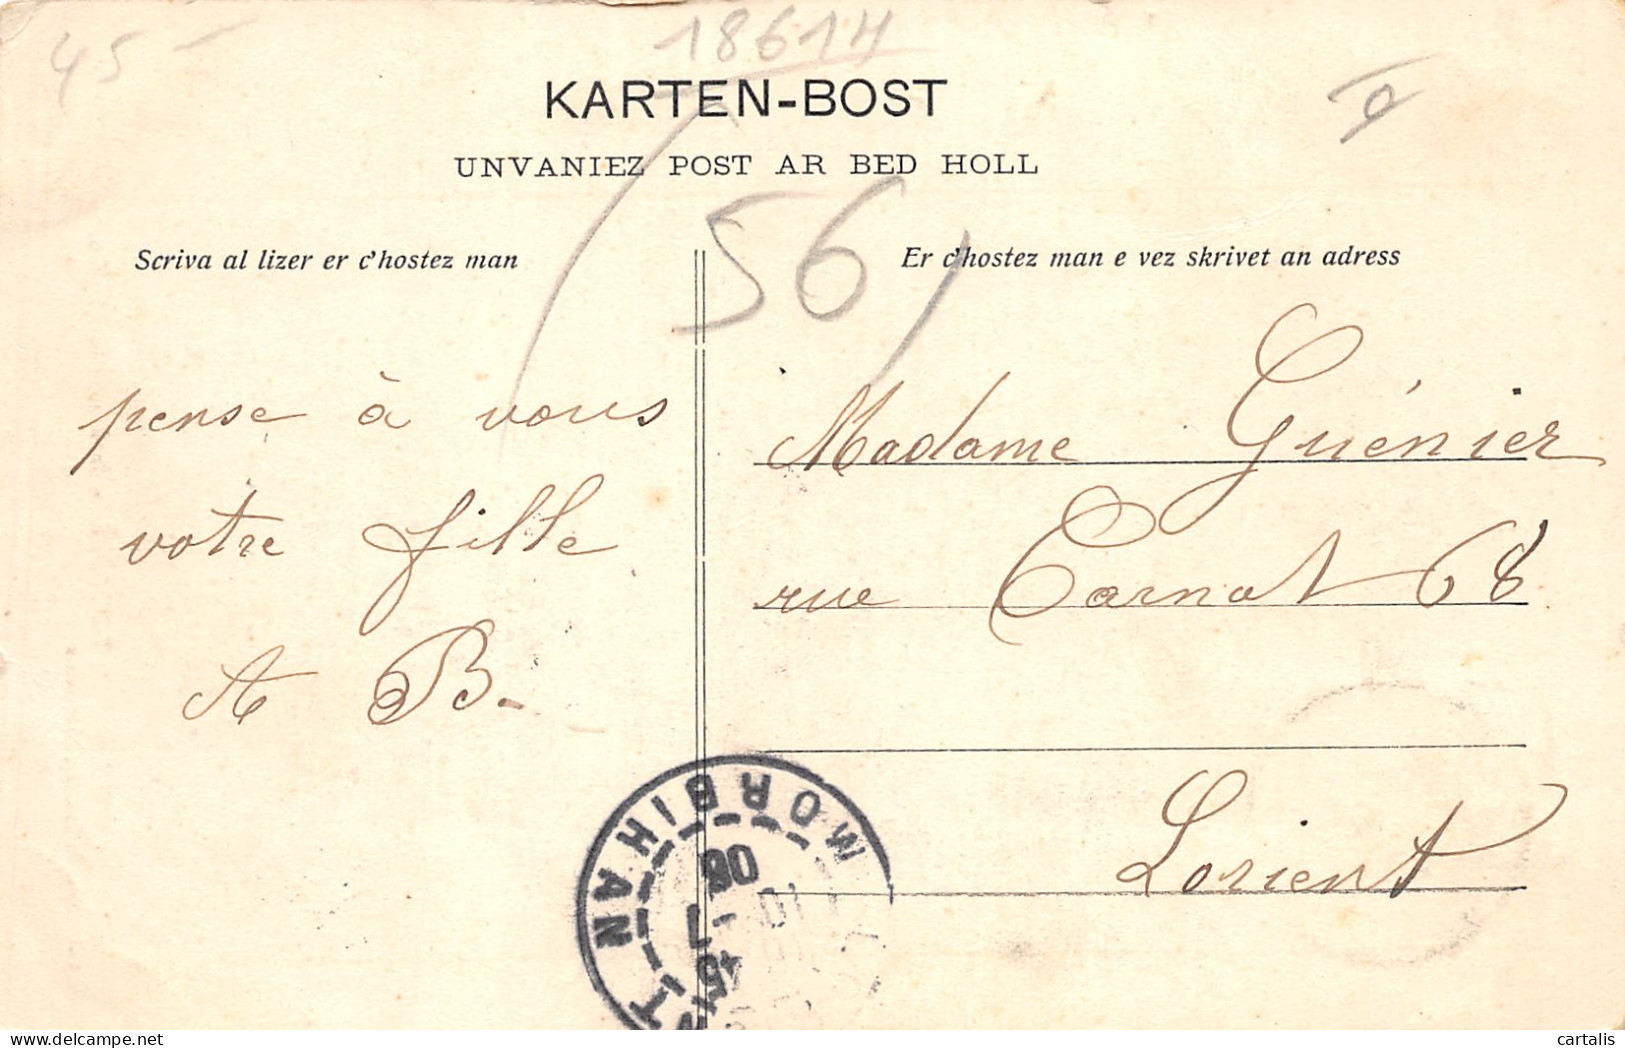 45
18614
KARTEN-BOST
UNVANIEZ POST AR BED HOLL
56
Scriva al lizer er c'hostez man
Er c'hostez man e vez skrivet an adress
pense à vous
votre fille
A B.
Madame Guénier
rue Carnot 68
Lorient
MORBIHAN
08
cartalis